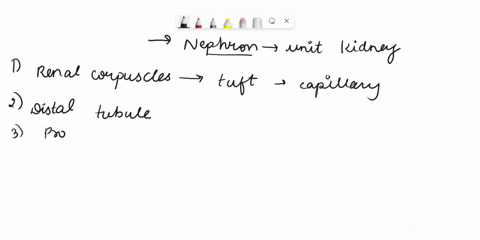 → Nephron → unit kidney
1) Renal corpuscles → tuft → capillary
2) Distal tubule
3) Pro